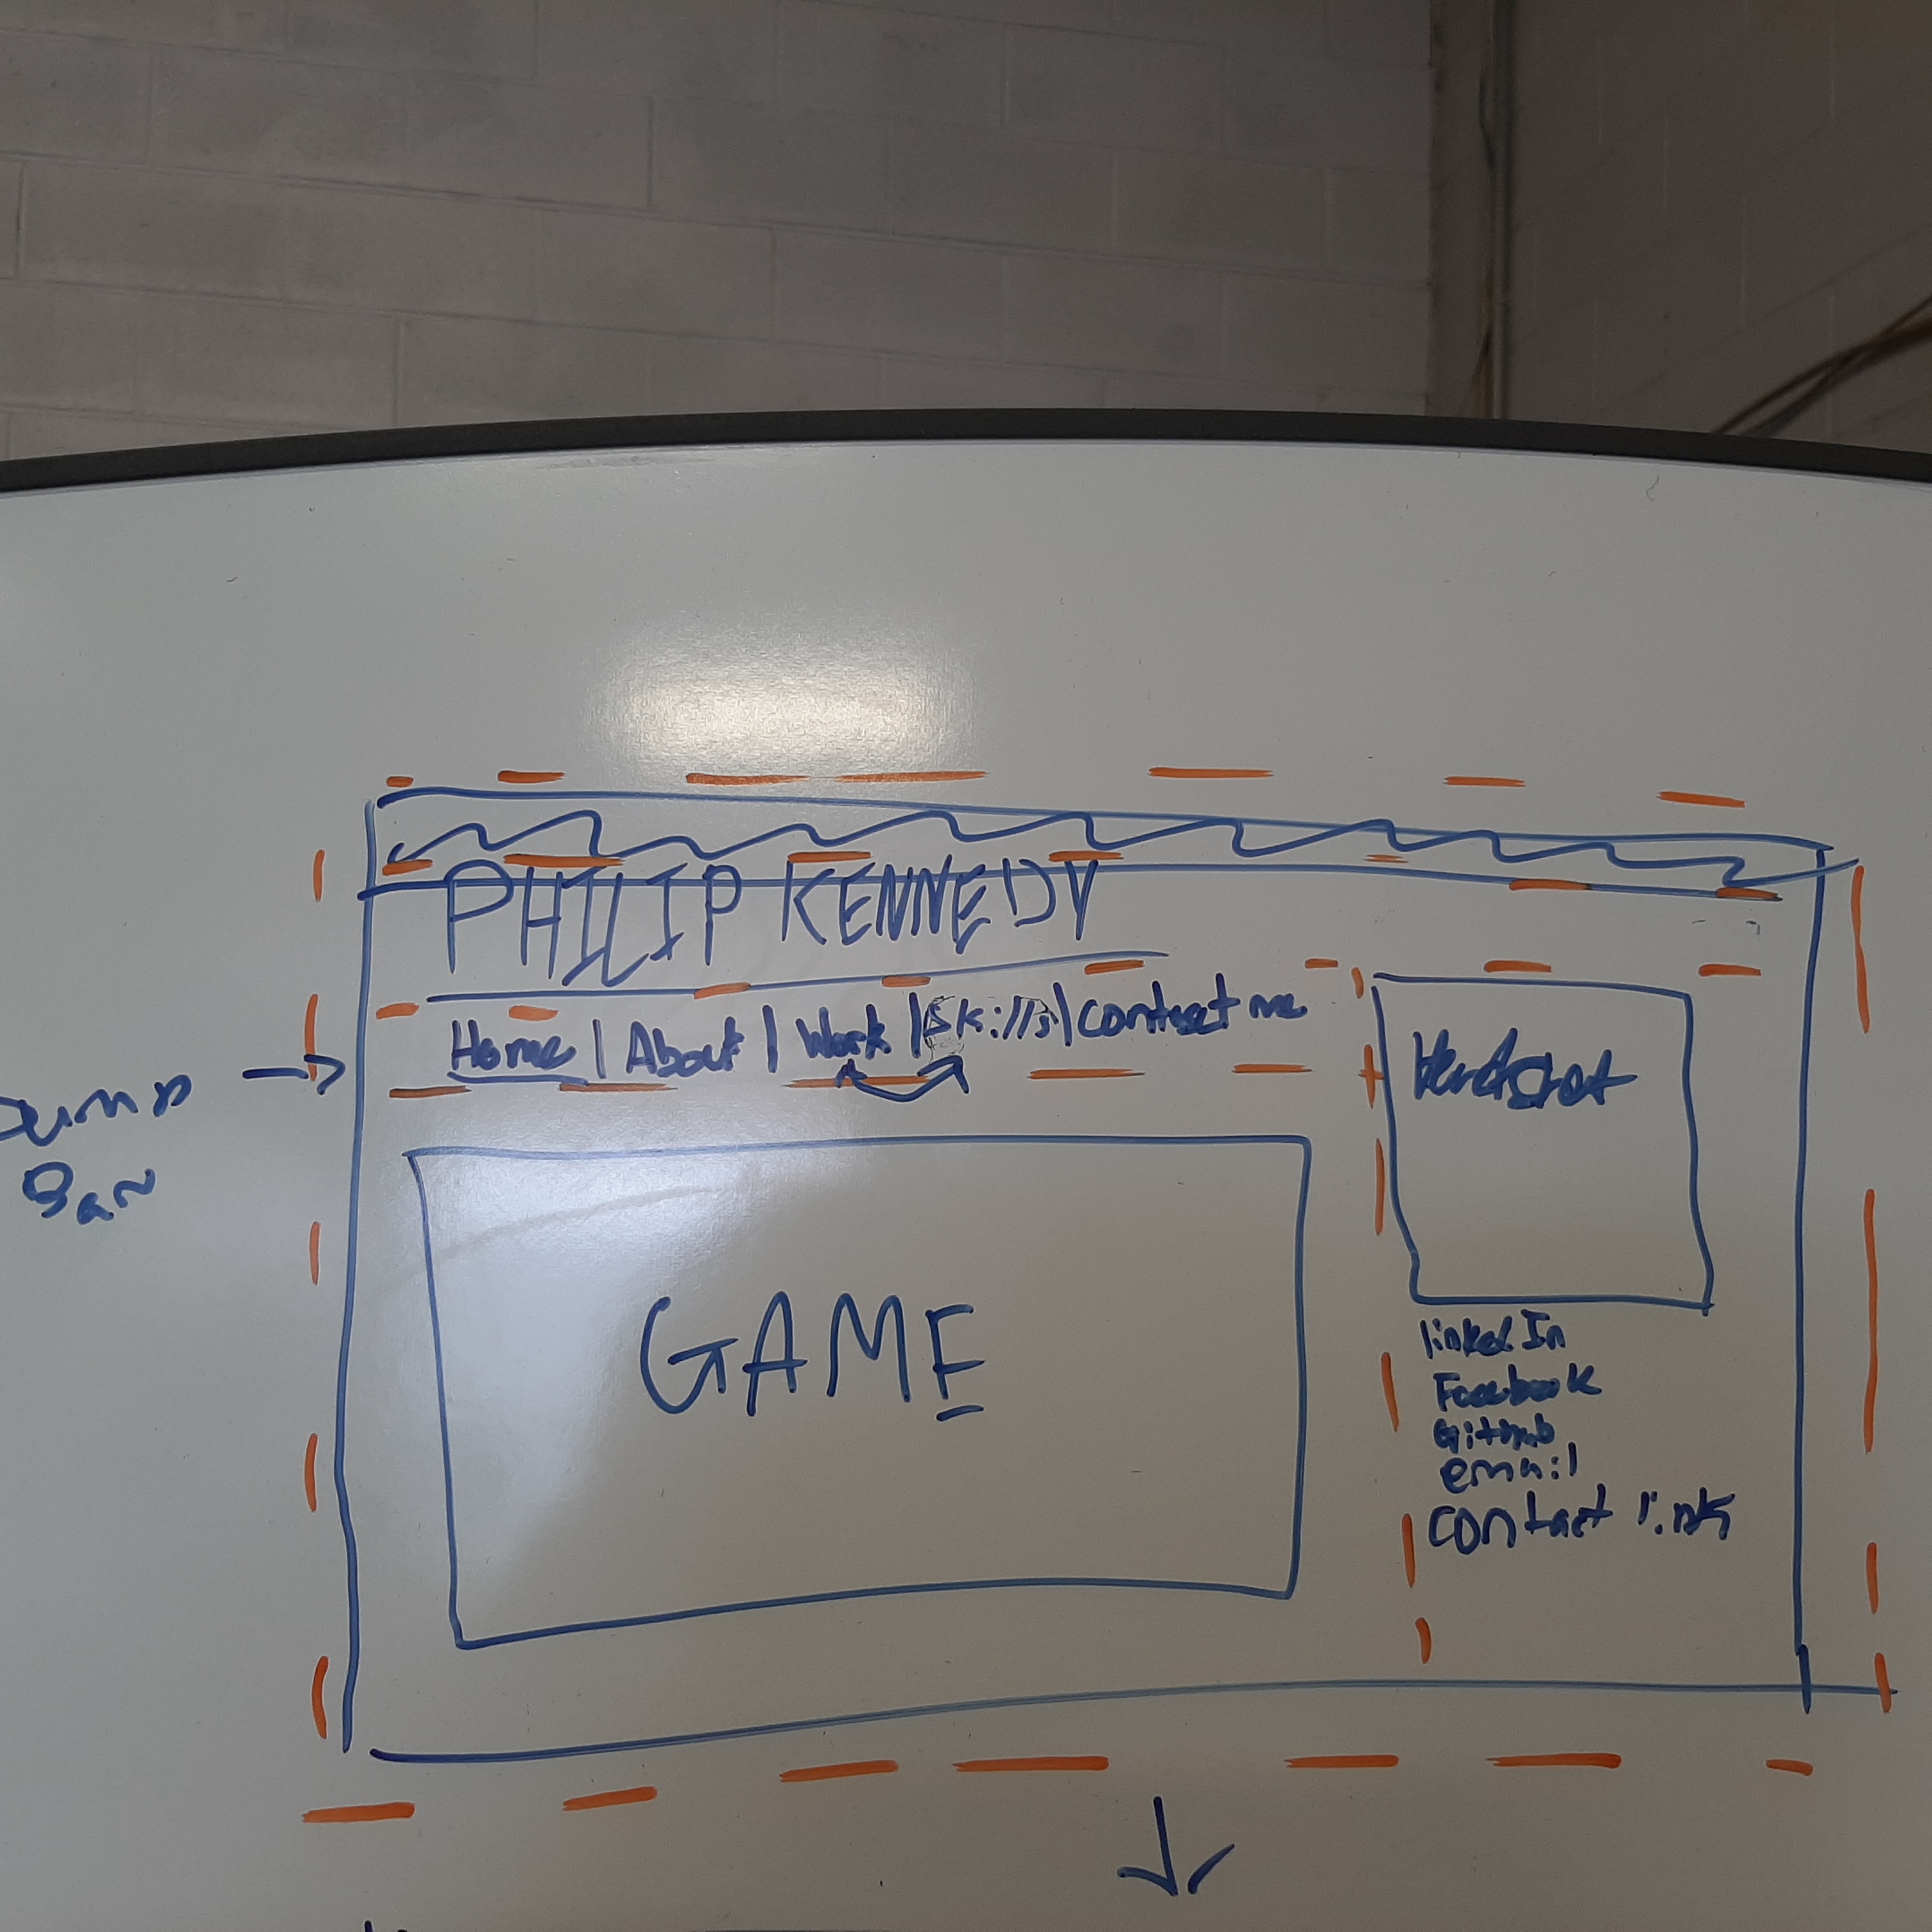 PHILIP KENNEDY
Home | About | Work | Skills | contact me
Jump
Bar
Headshot
GAME
linked In
Facebook
Github
email
contact link